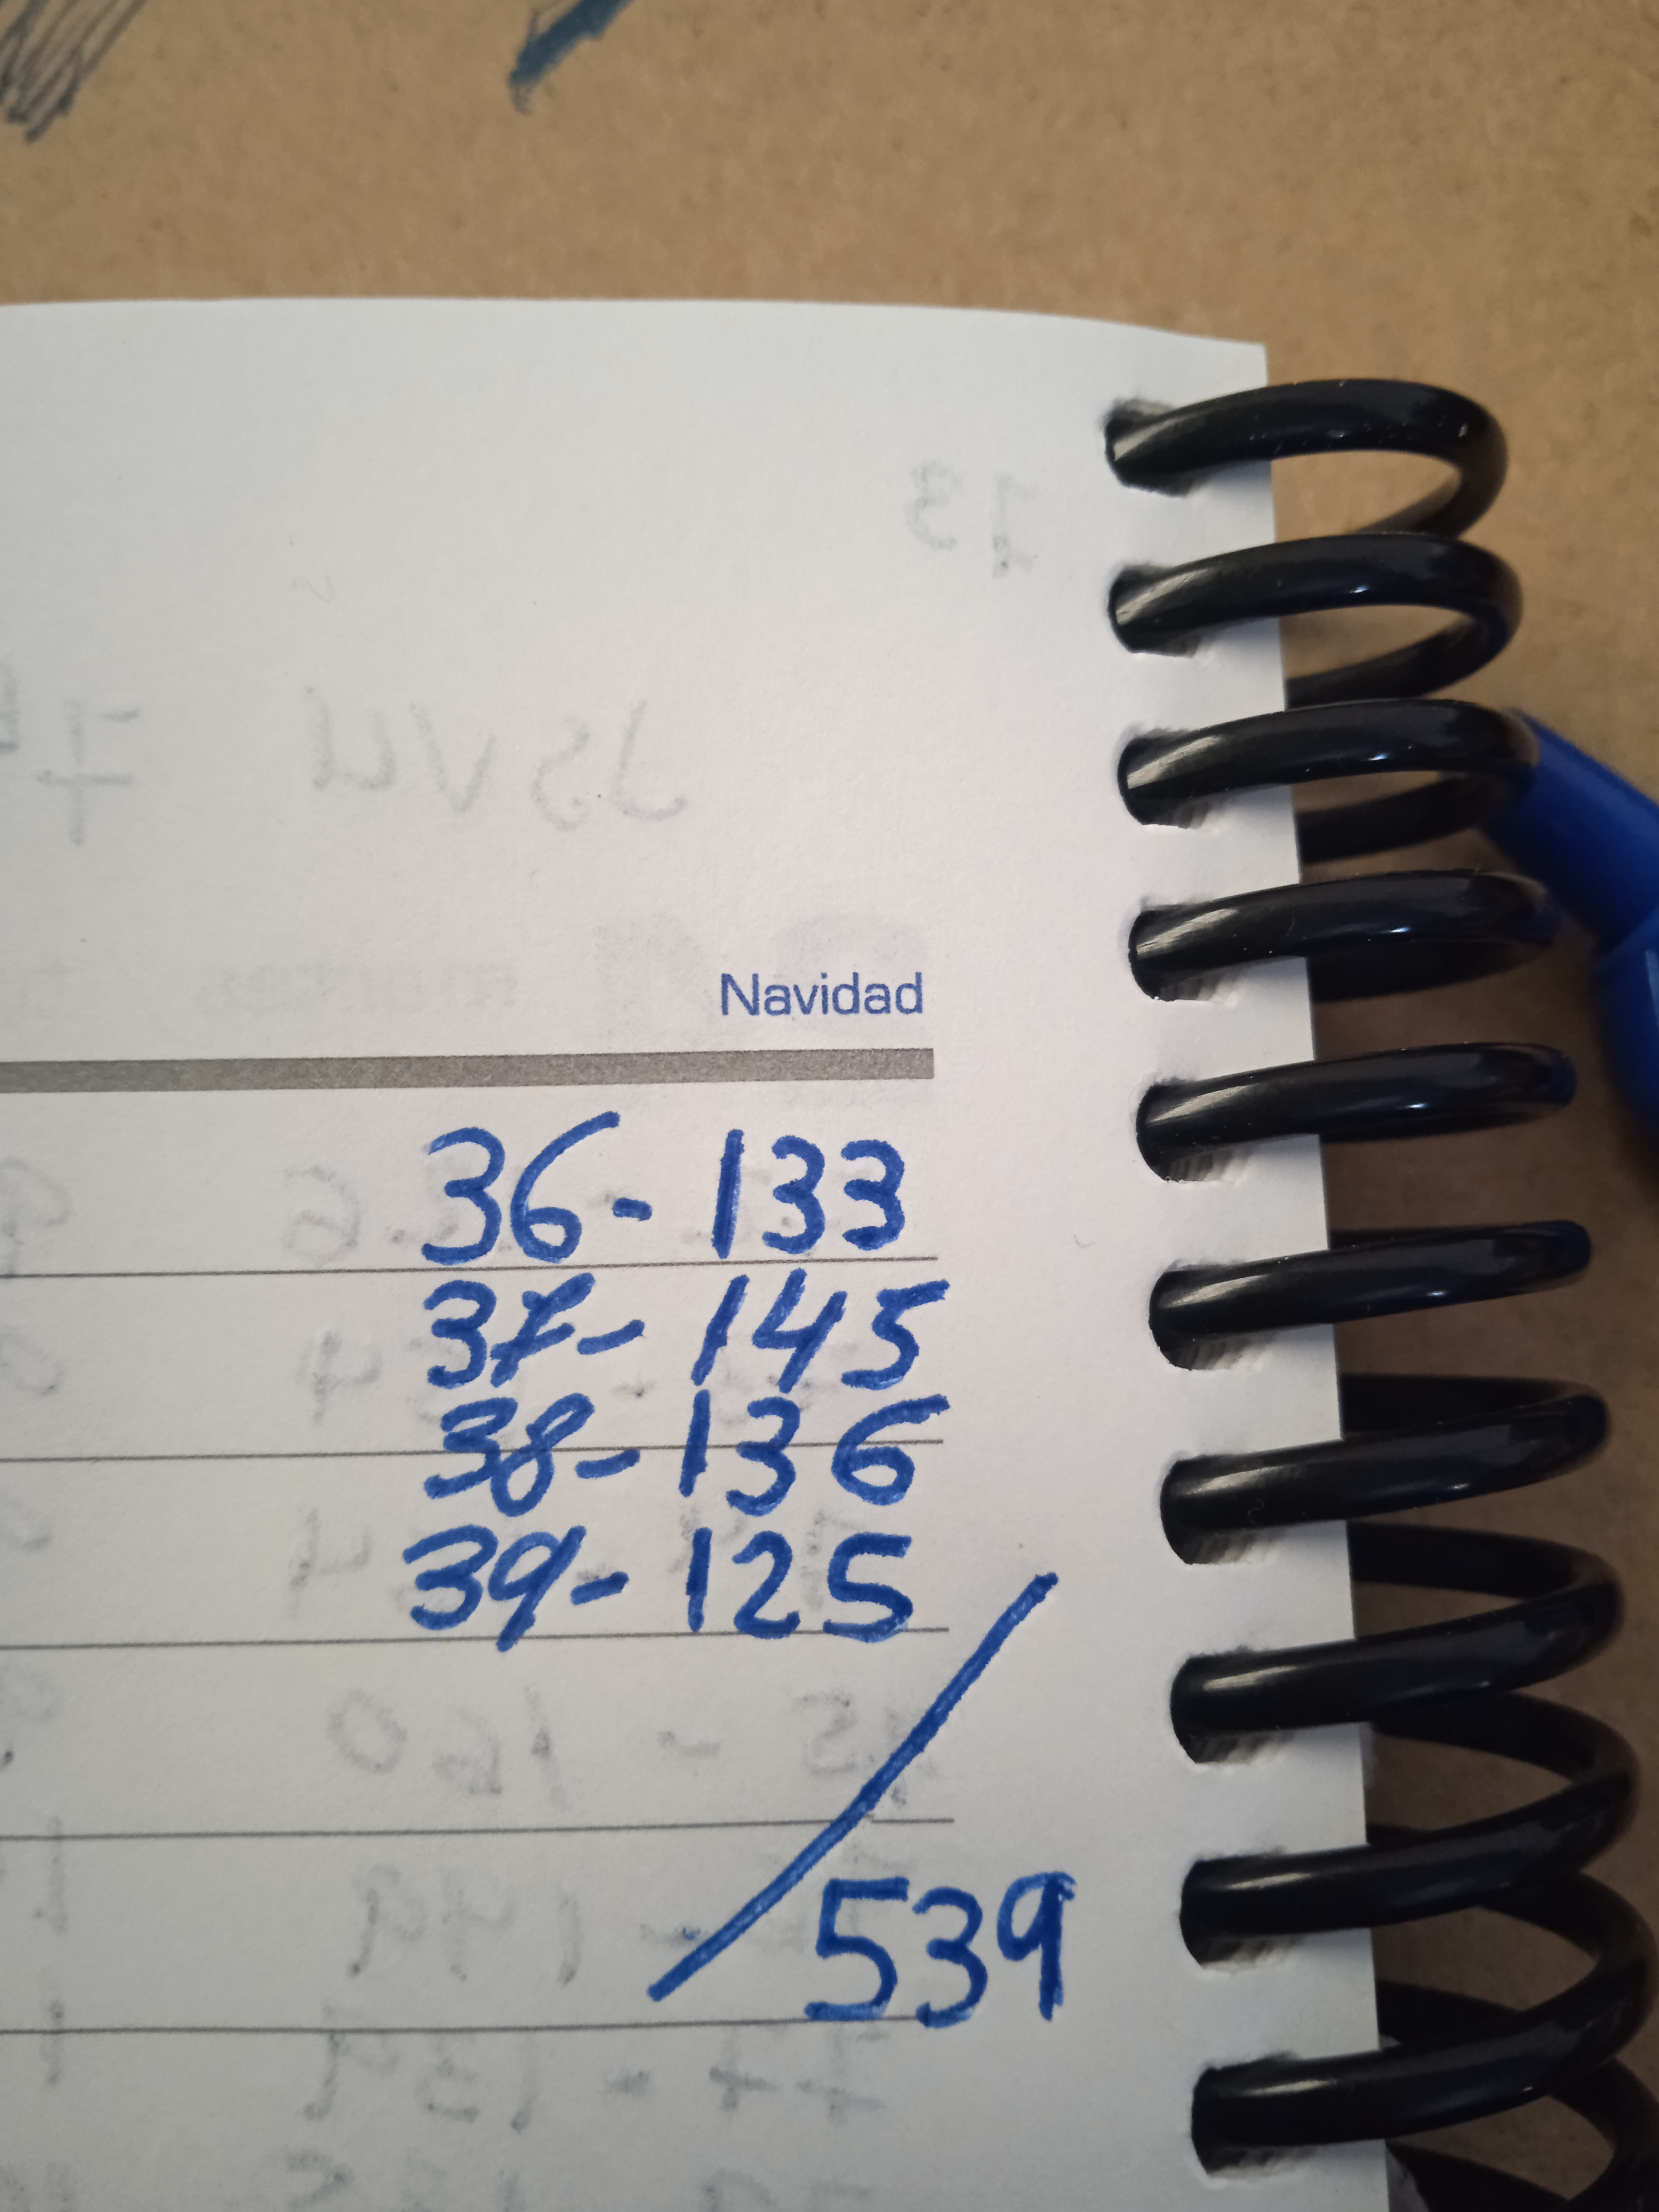 Navidad
36-133
37-145
38-136
39-125
539